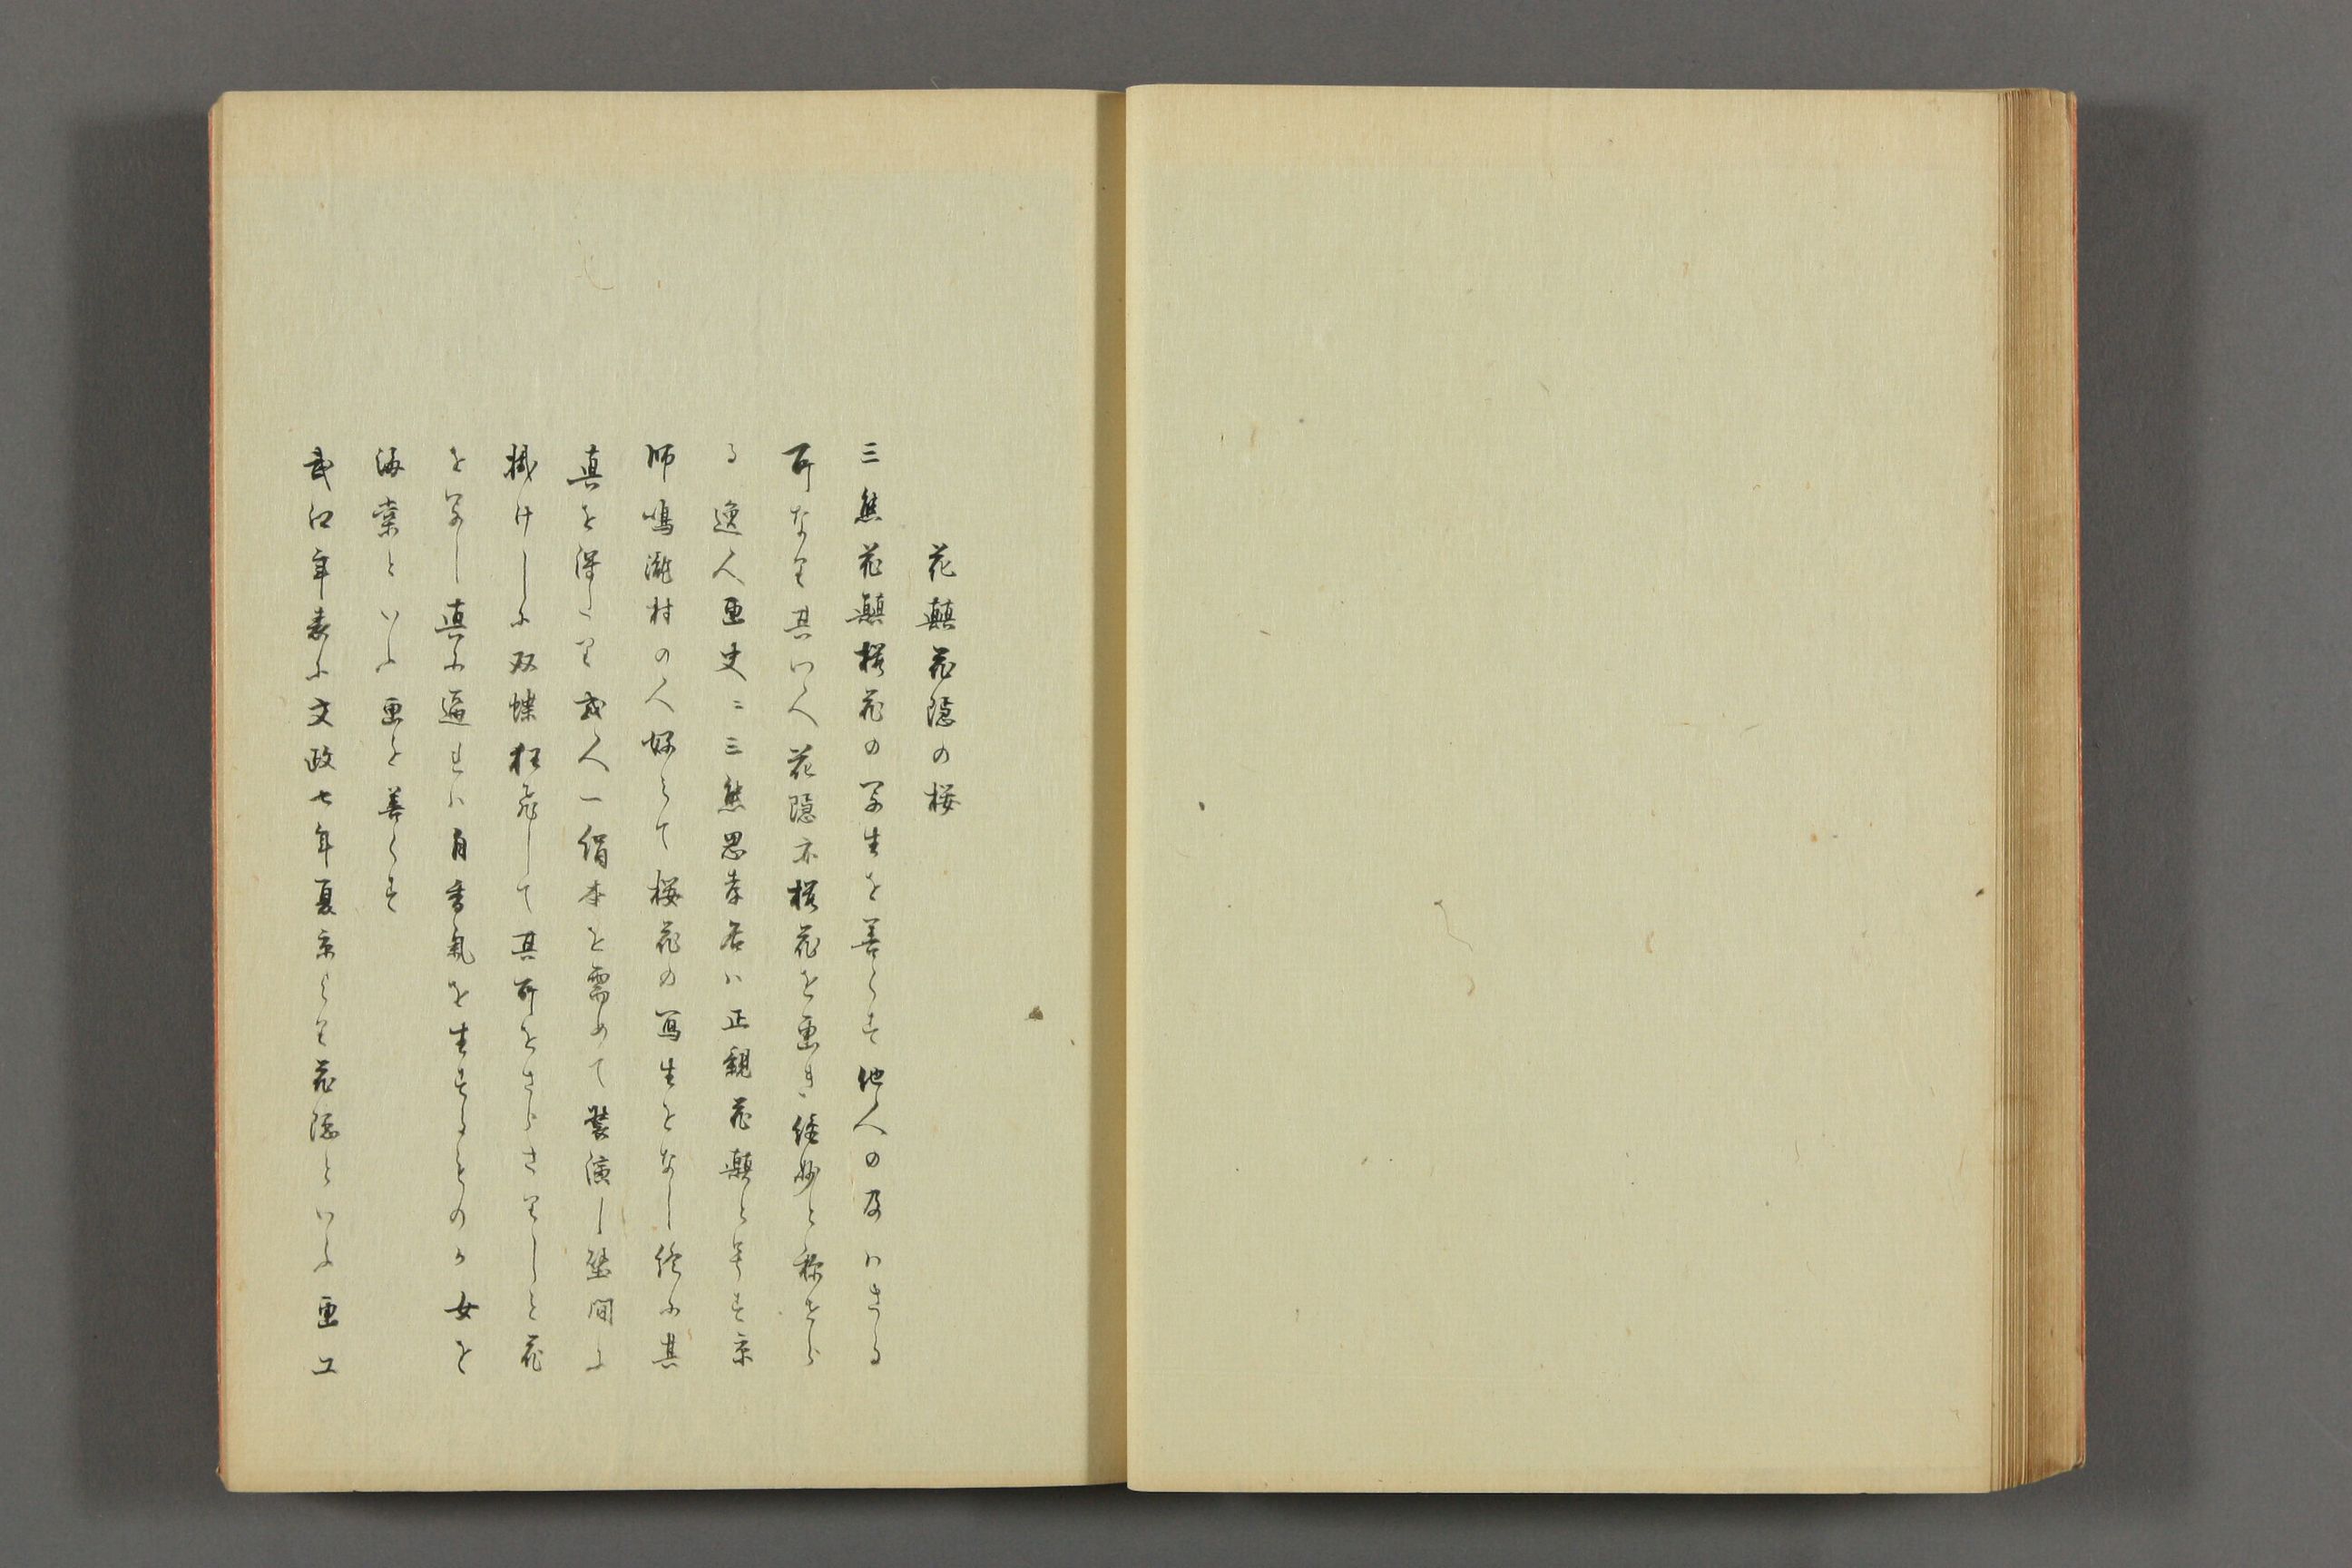 花顛花隠の桜
三熊花顛桜花の写生を善くす他人の及ハさる
所なり其いへ花隠亦桜花を画き絶妙と称せら
る 逸人画史ニ三熊思孝名ハ正親花顛と号す京
師鳴瀧村の人好みて桜花の写生をなし終に其
真を得たり或人一絹本を需めて装潢し壁間に
掛けしに双蝶狂飛して其所をさらさりしと花
を写し真に逼れハ自香気を生するものか女を
海棠といふ画を善くす
武江年表に文政七年夏京より花隠といふ画工